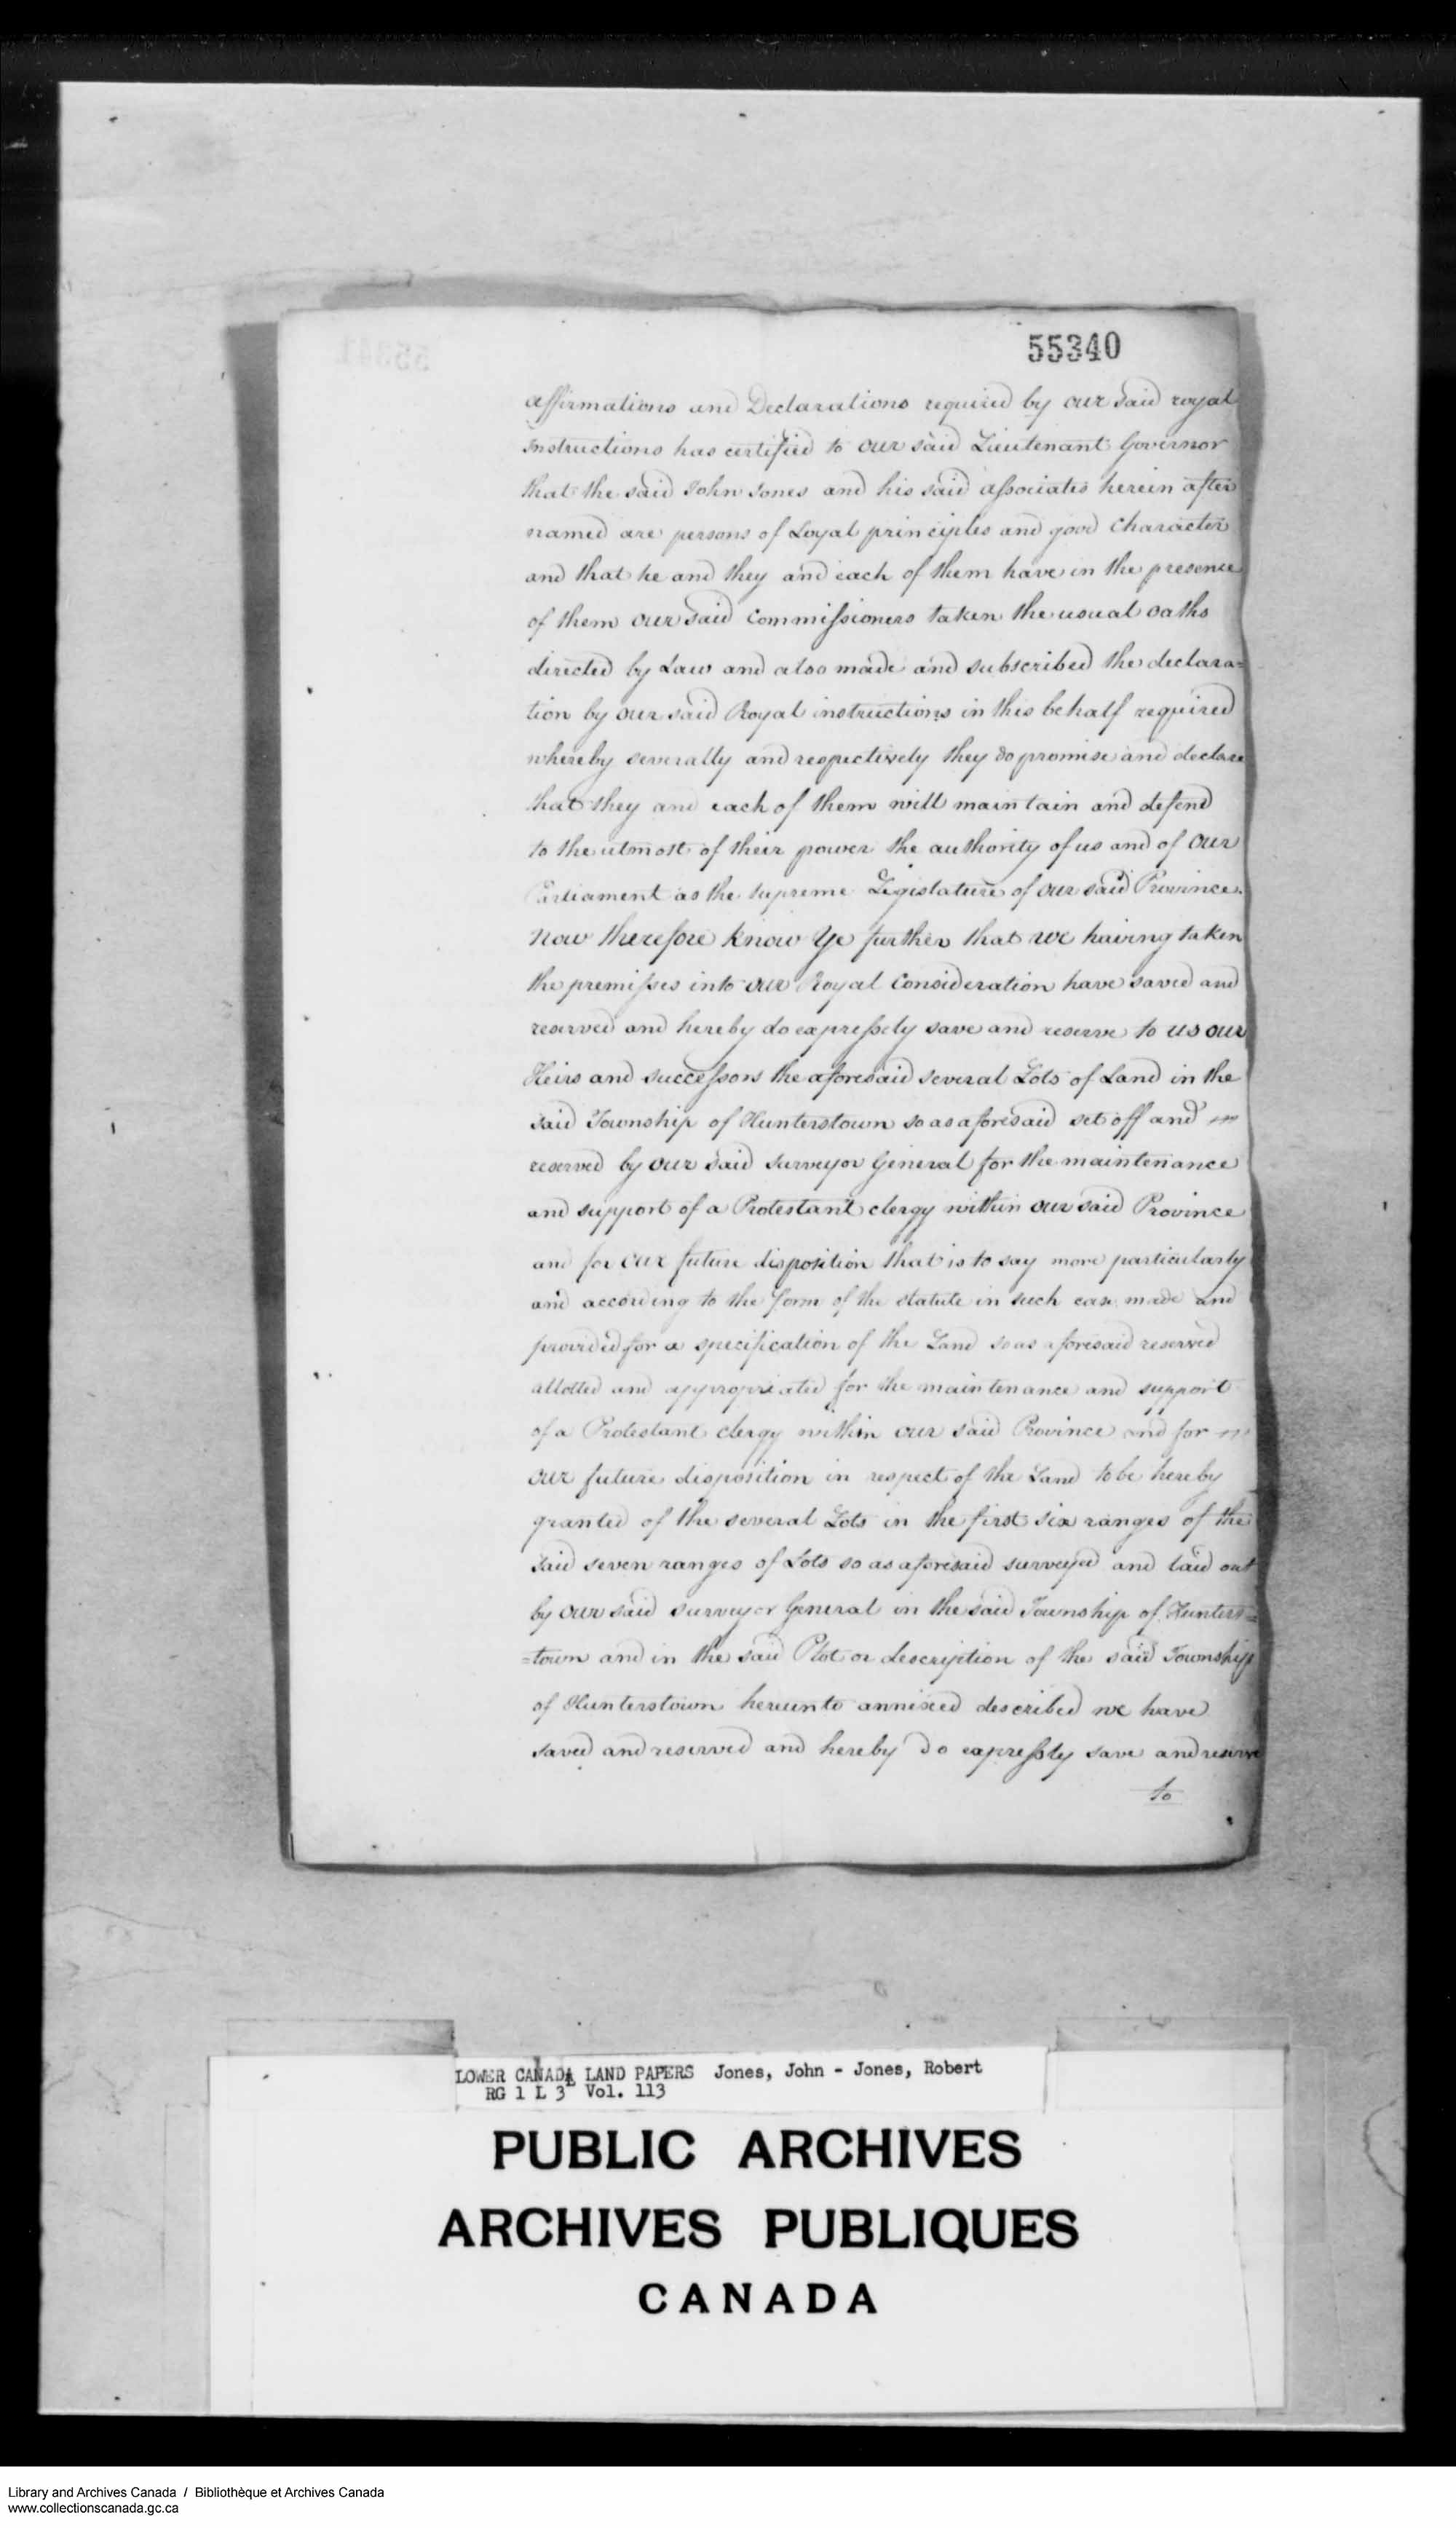 55340
affirmations and Declarations required by our said royal
instructions has certified to our said Lieutenant Governor
that the said John Jones and his said associates herein after
named are persons of Loyal principles and good Character
and that he and they and each of them have in the presence
of them our said Commissioners taken the usual oaths
directed by Law and also made and subscribed the declara=
tion by our said Royal instructions in this behalf required
whereby severally and respectively they do promise and declare
that they and each of them will maintain and defend
to the utmost of their power the authority of us and of our
Parliament as the supreme Legislature of our said Province.
Now therefore know Ye further that we having taken
the premisses into our Royal Consideration have saved and
reserved and hereby do expressely save and reserve to us our
Heirs and successors the aforesaid several Lots of Land in the
said Township of Hunterstown so as aforesaid set off and
reserved by our said surveyor General for the maintenance
and support of a Protestant clergy within our said Province
and for our future disposition that is to say more particularly
and according to the form of the statute in such case made and
provided for a specification of the Land so as aforesaid reserved
allotted and appropriated for the maintenance and support
of a Protestant clergy within our said Province and for
our future disposition in respect of the Land to be hereby
granted of the several Lots in the first six ranges of the
said seven ranges of Lots so as aforesaid surveyed and laid out
by our said surveyor General in the said Township of Hunters=
=town and in the said Plot or description of the said Township
of Hunterstown hereunto annixed described we have
saved and reserved and hereby do expressly save and reserve
to
LOWER CANADA LAND PAPERS Jones, John - Jones, Robert
RG 1 L 3 Vol. 113
PUBLIC ARCHIVES
ARCHIVES PUBLIQUES
CANADA
Library and Archives Canada / Bibliothèque et Archives Canada
www.collectionscanada.gc.ca